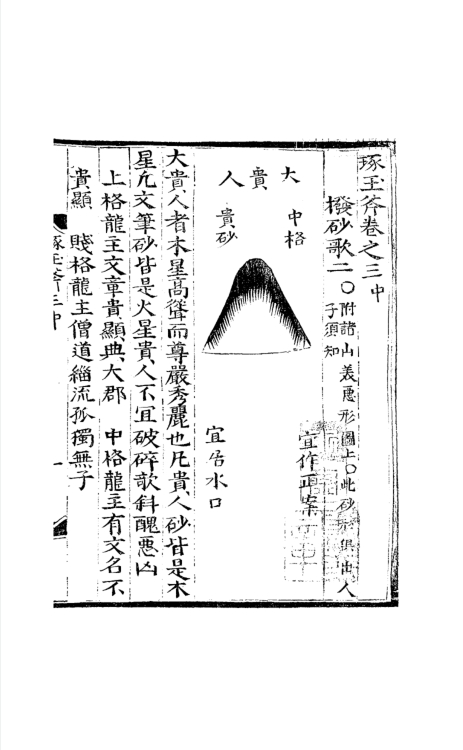 琢玉斧卷之三中
撥砂歌二〇附諸山美惡形圖上〇此砂形俱出人
子須知
大貴人
中格
貴砂
宜作正案
宜居水口
大貴人者木星高聳而尊嚴秀麗也凡貴人砂皆是木
星凢文筆砂皆是火星貴人不宜破碎欹斜醜惡凶
上格龍主文章貴顯典大郡　中格龍主有文名不
貴顯　賤格龍主僧道緇流孤獨無子
琢玉斧三中
一